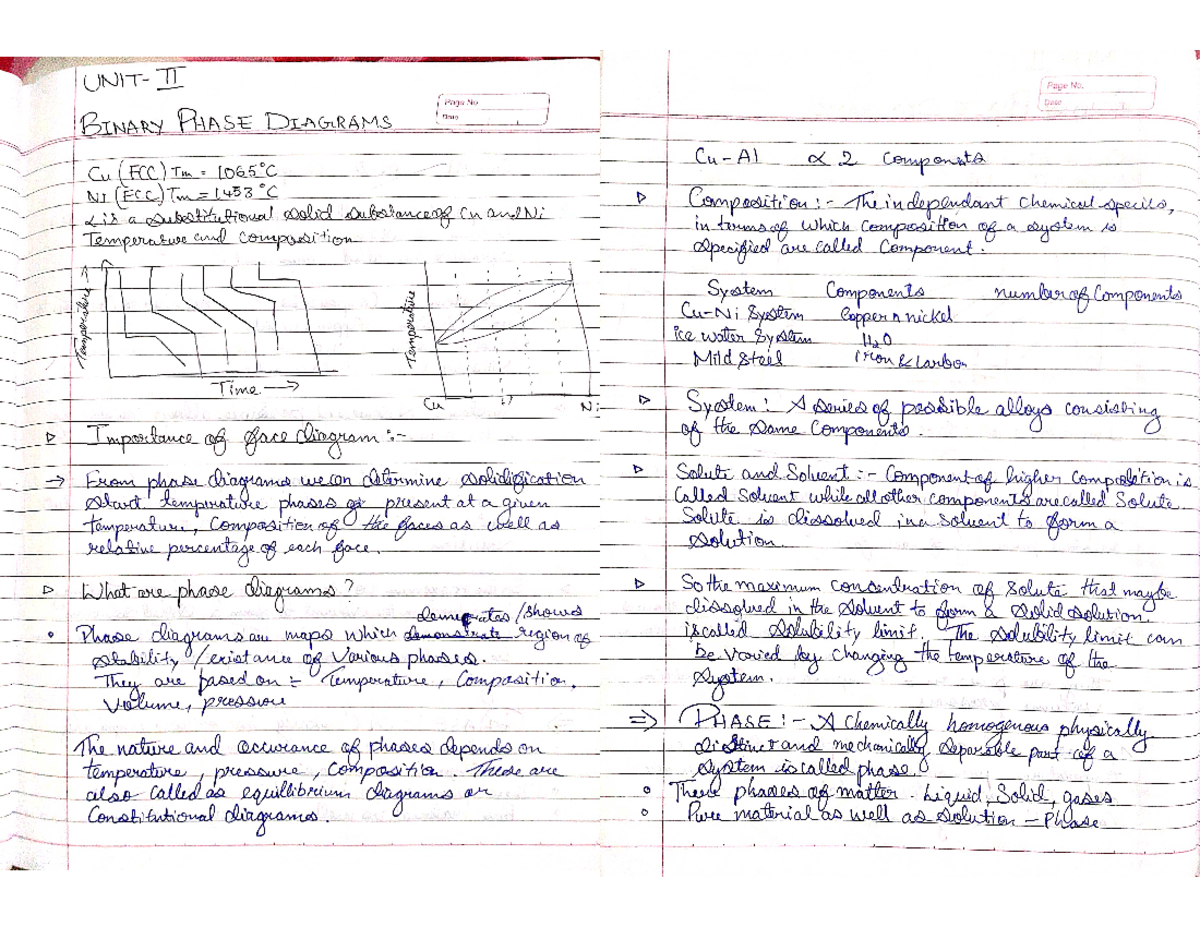 UNIT- II
BINARY PHASE DIAGRAMS
Page No
Date
Cu (FCC) Tm = 1065°C
Ni (FCC) Tm = 1453°C
α is a substitutional solid substance of Cu and Ni
Temperature and composition
Temperature →
Time →
Temperature
Cu
Ni
▷ Importance of face diagram :-
→ From phase diagrams we can determine solidigication
start temperature phases of present at a given
tamperature, composition of the faces as well as
relative percentage of each face.
▷ What are phase diagrams?
demostrates / shows
• Phase diagrams are maps which demonstrate region of
stability / existance of various phases.
They are based on :- Temperature, Composition,
Volume, pressure
The nature and occurance of phases depends on
temperature, pressure, composition. These are
also called as equillibrium diagrams or
Constitutional diagrams.
Page No.
Date
Cu - Al α 2 components
▷ Composition :- The independant chemical specits,
in terms of which composition of a system is
specified are called Component.
System Components number of Components
Cu-Ni System Copper n nickel
ice water System H2O
Mild Steel iron & Carbon
▷ System : A series of possible alloys consisting
of the same Components.
▷ Solute and Solvent :- Component of higher composition is
called Solvent while all other components are called Solute
Solute is dissolved in a solvent to form a
solution.
▷ So the maximum concentration of solute that maybe
dissolved in the solvent to form a solid solution.
is called solubility limit. The solubility limit can
be varied by changing the temperature of the
system.
⇒ PHASE :- A Chemically homogenous physically
distinct and mechanically separable part of a
system is called phase.
o Three phases of matter. Liquid, Solid, gases
o Pure material as well as solution - Phase